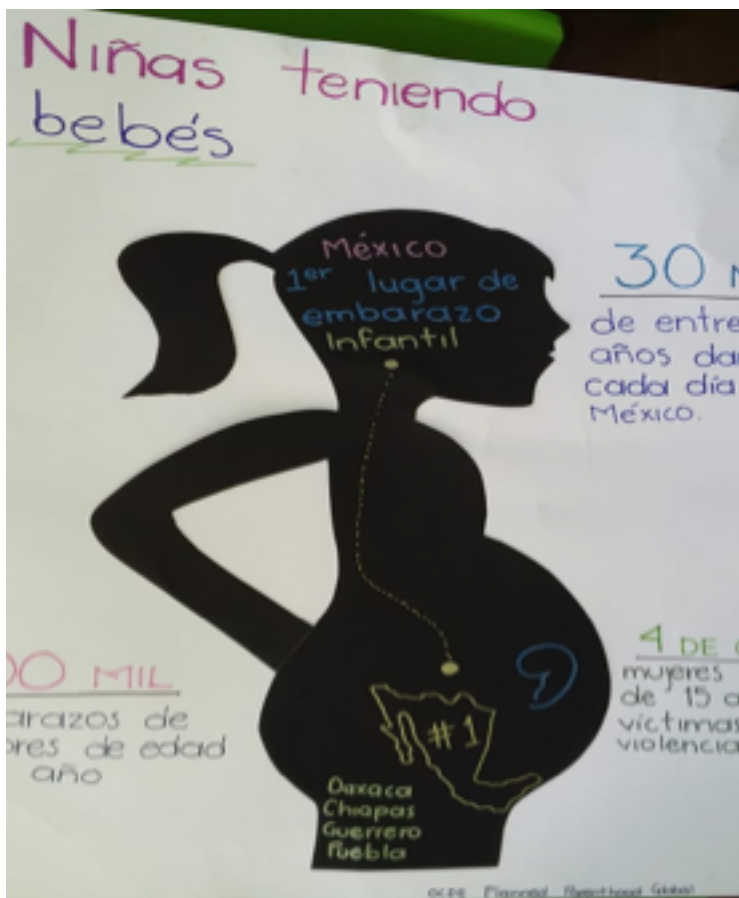 Niñas teniendo
bebés
México
1er lugar de
embarazo
Infantil
30
de entre
años
cada día
México.
4 DE
mujeres
de 15
víctimas
violencia
MIL
de
de edad
año
#1
Oaxaca
Chiapas
Guerrero
Puebla
OCDE Planned Parenthood Global